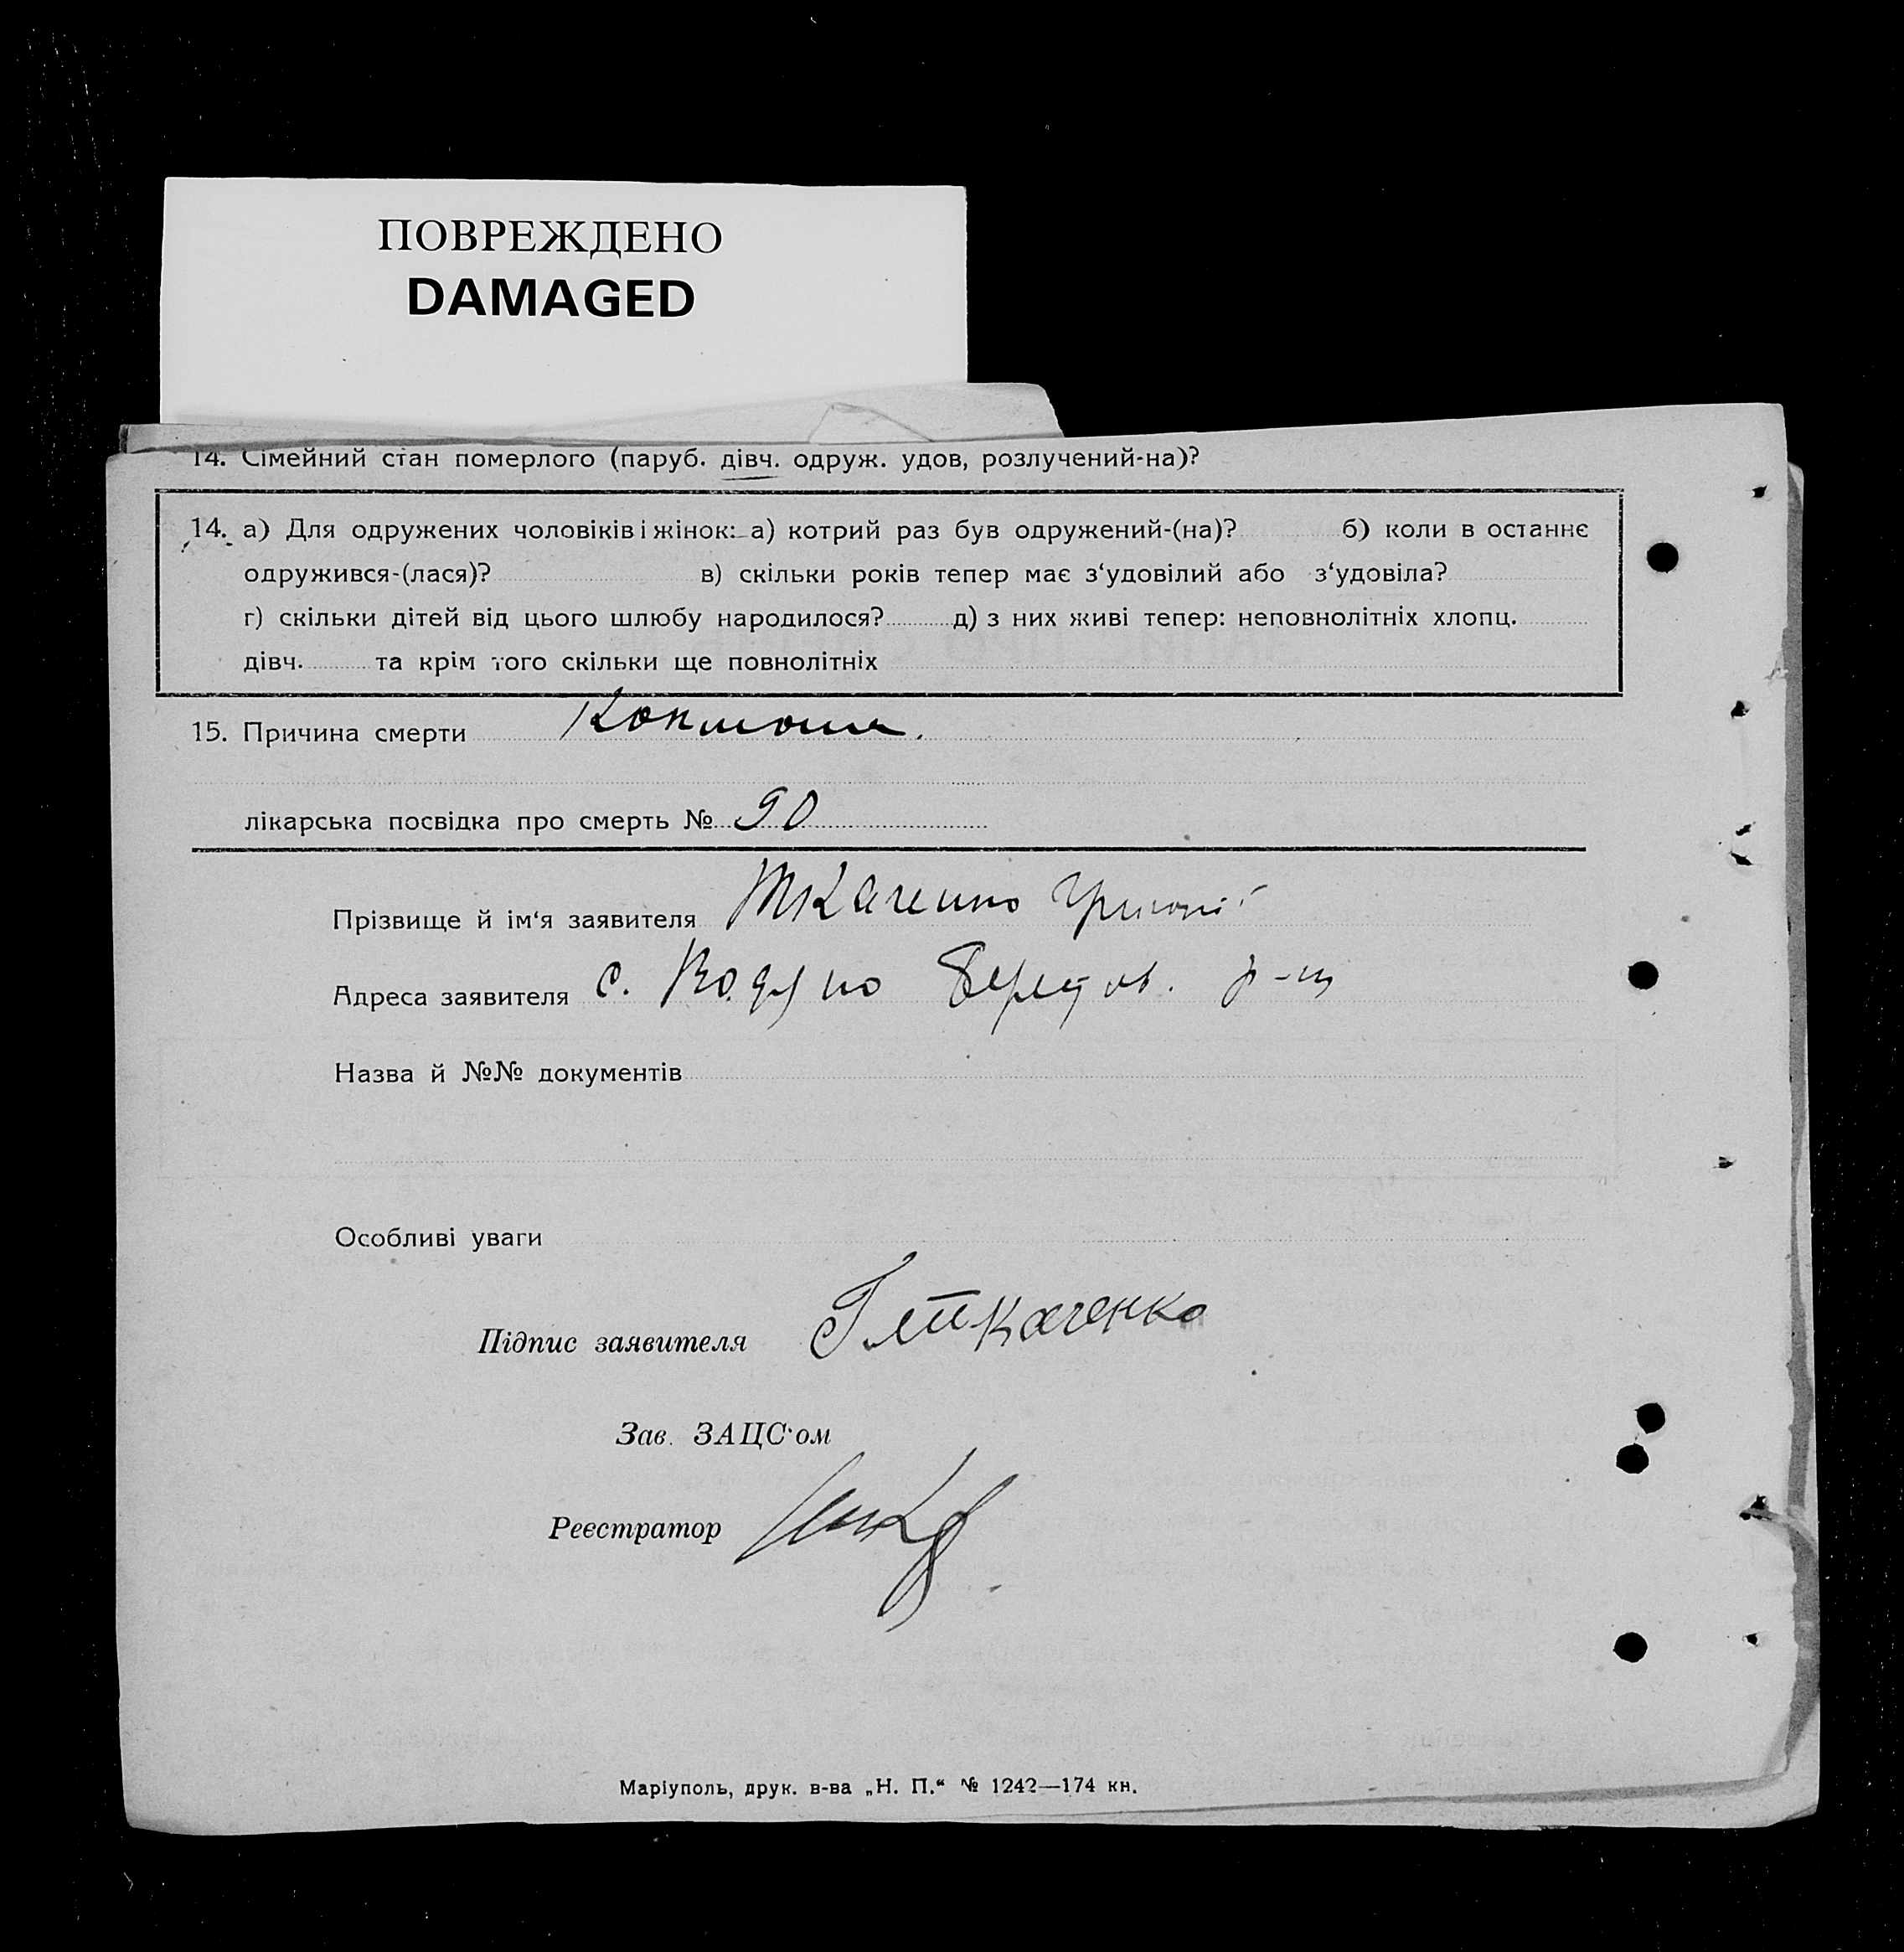 ПОВРЕЖДЕНО
DAMAGED
14. Сімейний стан померлого (паруб. дівч. одруж. удов, розлучений-на)?
14. а) Для одружених чоловіків і жінок: а) котрий раз був одружений-(на)? б) коли в останнє
одружився-(лася)? в) скільки років тепер має з‘удовілий або з‘удовіла?
г) скільки дітей від цього шлюбу народилося? д) з них живі тепер: неповнолітніх хлопц.
дівч. та крім того скільки ще повнолітніх
15. Причина смерти
лікарська посвідка про смерть № 90
Прізвище й ім‘я заявителя Ткаченко Григорій
Адреса заявителя с. р-н
Назва й №№ документів
Особливі уваги
Підпис заявителя Ткаченко
Зав. ЗАЦС‘ом
Реєстратор
Маріуполь, друк. в-ва „Н. П.“ № 1242—174 кн.